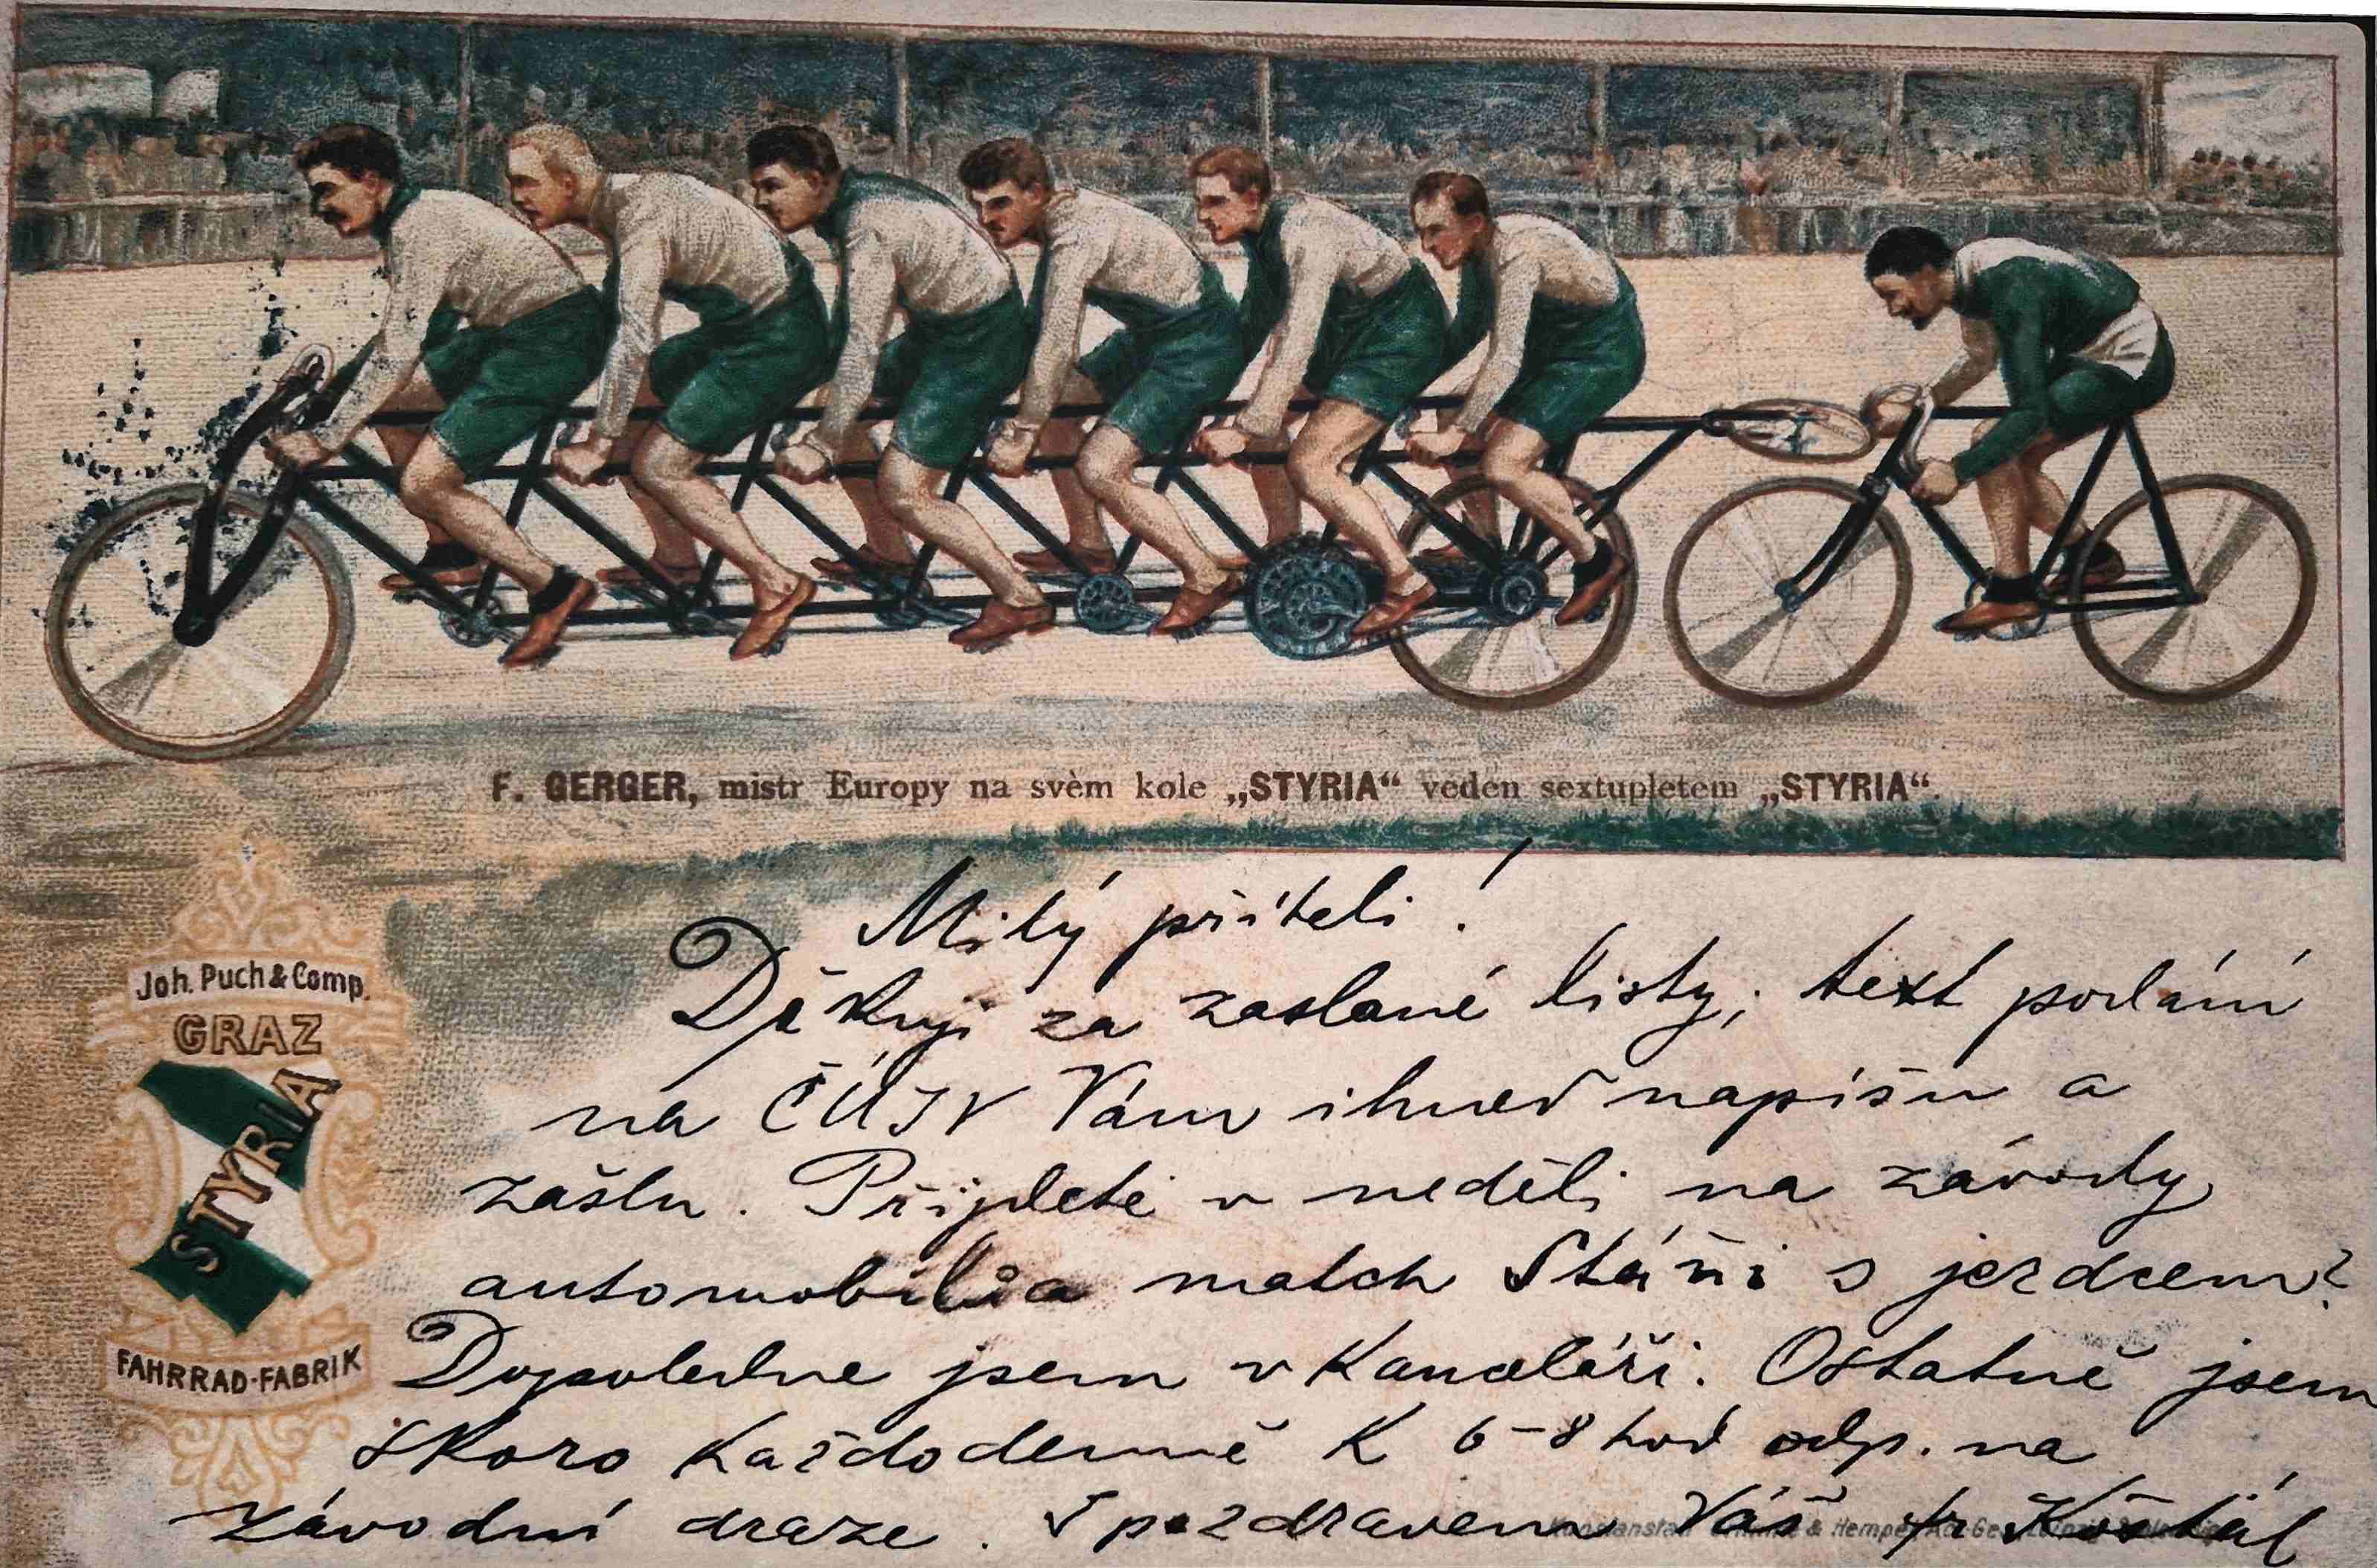 F. GERGER, mistr Europy na svèm kole „STYRIA“ veden sextupletem „STYRIA“.
Joh. Puch & Comp.
GRAZ
STYRIA
FAHRRAD-FABRIK
Milý příteli!
Děkuji za zaslané listy; text podání
na ČÚJV Vám ihned napíšu a
zašlu. Přijdete v neděli na závody
automobilů a match Stáni s jezdcem?
Dopoledne jsem v kanceláři. Ostatně jsem
skoro každodenně k 6-8 hod odp. na
závodní dráze. S pozdravem Váš Fr Košťál
& Hempel Act-Ges. Leipzig